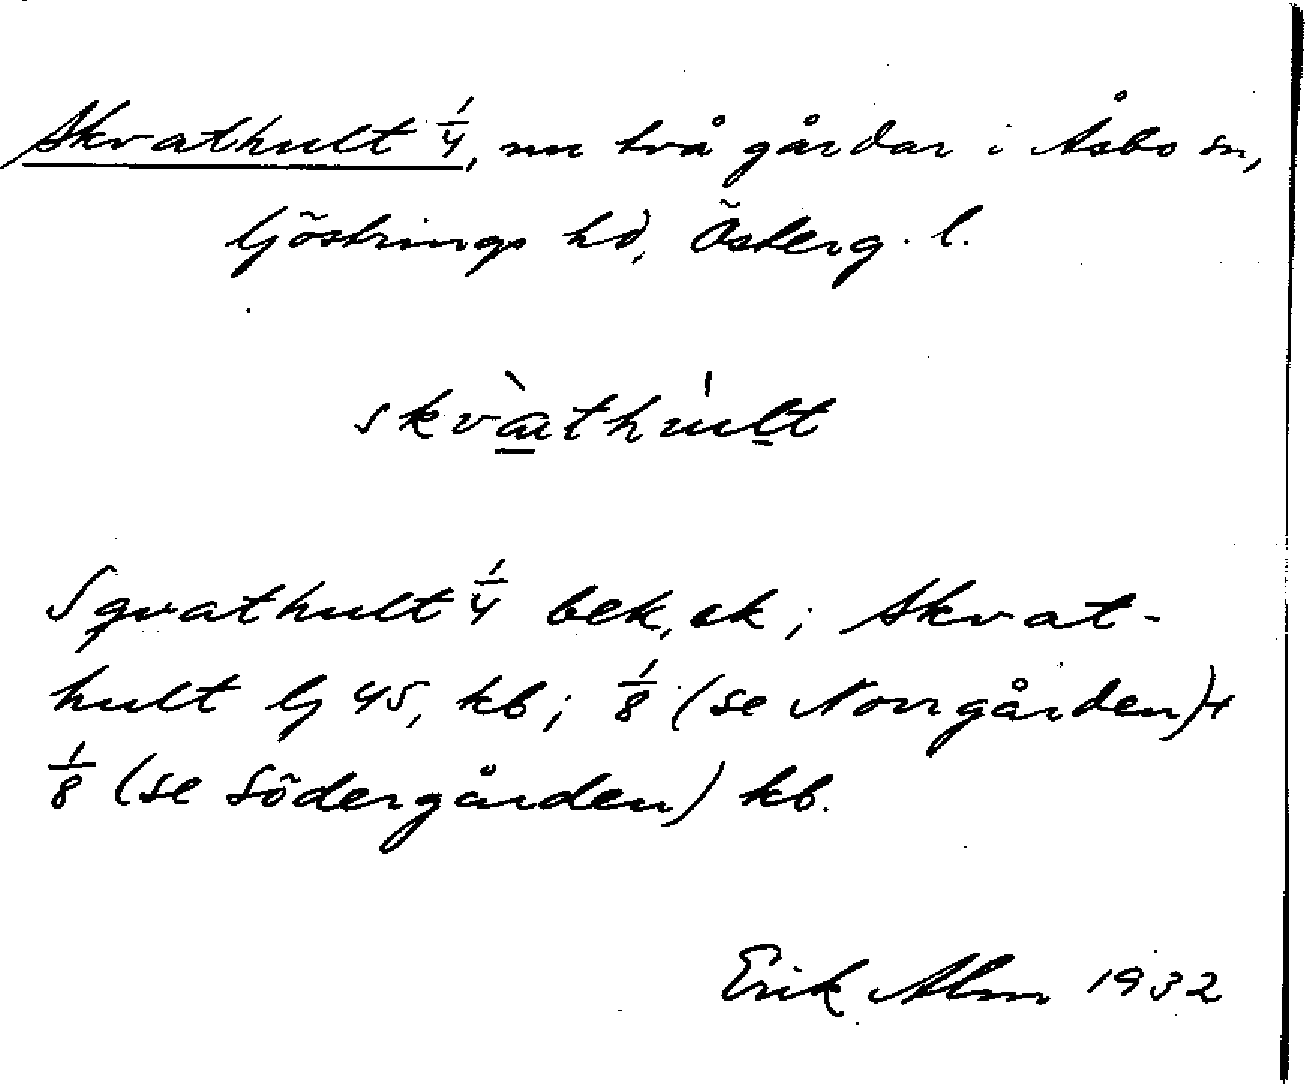 Skvathult 1/4, nu två gårdar i Åsbo sn,
Göstrings hd, Österg. l.
skvàthúlt
Sqvathult 1/4 bek, ek; Skvat-
hult Gj 45, kb; 1/8 (se Norrgården) +
1/8 (se Södergården) kb.
Erik Alm 1932